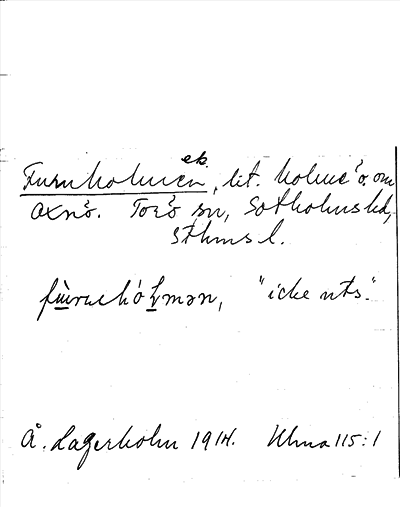 ek.
Furuholmen, lit. holme ö. om
Oxnö. Torö sn, Sotholms hd,
Sthms l.
fùruhólmən, "icke uts."
Å. Lagerholm 1914. Ulma 115:1